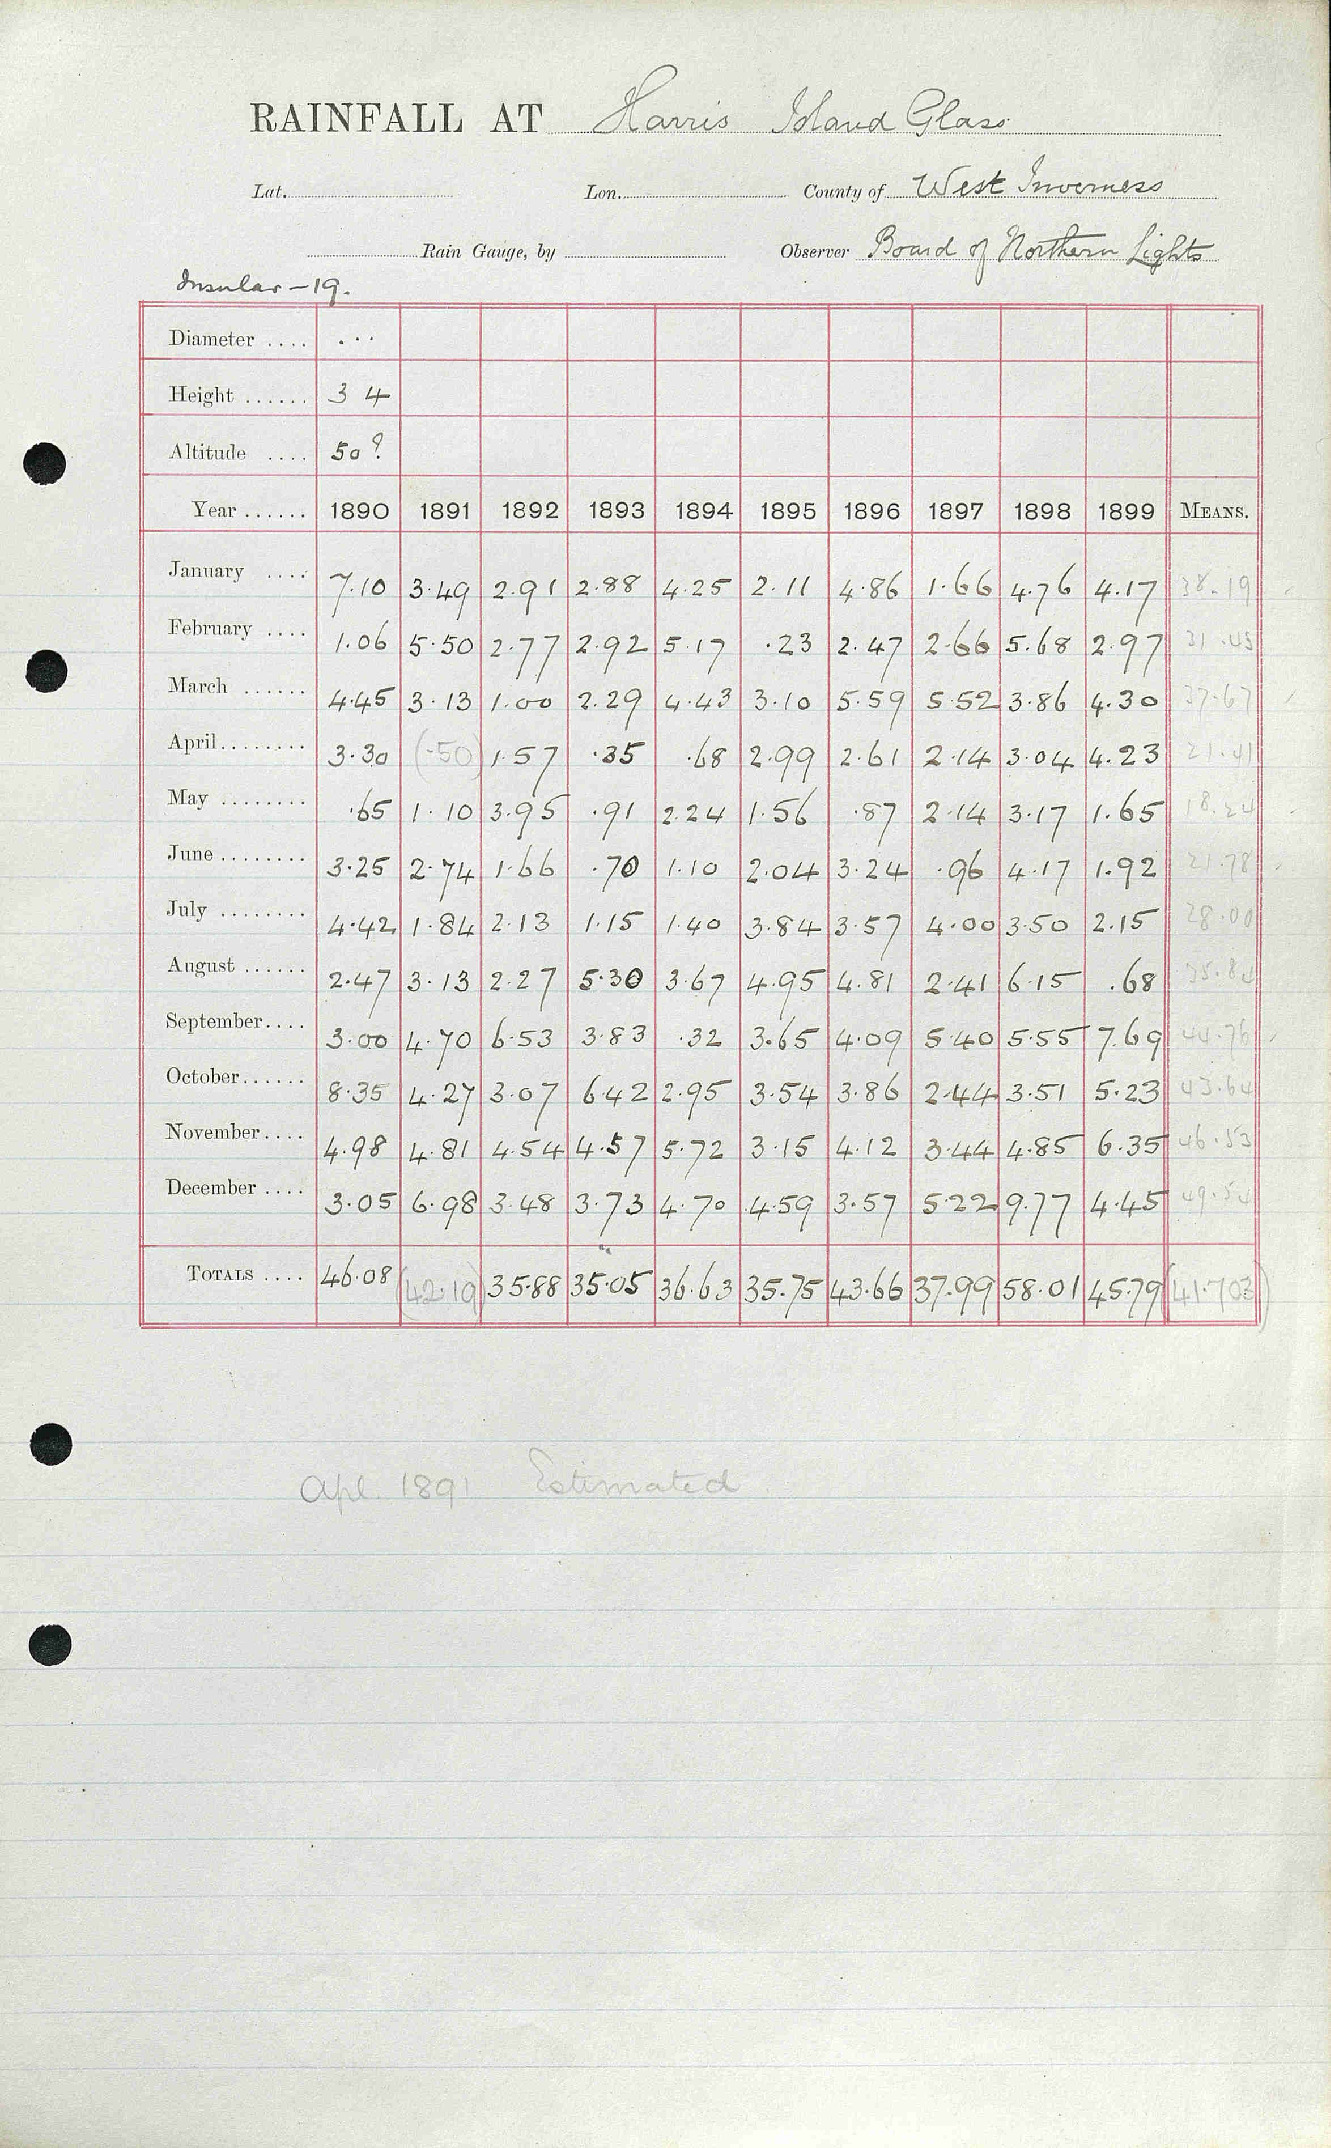 RAINFALL AT Harris Island Glass
Lat. Lon. County of West Inverness
Rain Gauge, by Observer Board of Northern Lights
Insular - 19.
Diameter .... ...
Height ...... 3 4
Altitude .... 50?
Year ...... 1890 1891 1892 1893 1894 1895 1896 1897 1898 1899 MEANS.
January .... 7.10 3.49 2.91 2.88 4.25 2.11 4.86 1.66 4.76 4.17 38.19
February .... 1.06 5.50 2.77 2.92 5.17 .23 2.47 2.66 5.68 2.97 31.43
March ...... 4.45 3.13 1.00 2.29 4.43 3.10 5.59 5.52 3.86 4.30 37.67
April........ 3.30 (.50) 1.57 .35 .68 2.99 2.61 2.14 3.04 4.23 21.41
May ........ .65 1.10 3.95 .91 2.24 1.56 .87 2.14 3.17 1.65 18.24
June ........ 3.25 2.74 1.66 .70 1.10 2.04 3.24 .96 4.17 1.92 21.78
July ........ 4.42 1.84 2.13 1.15 1.40 3.84 3.57 4.00 3.50 2.15 28.00
August ...... 2.47 3.13 2.27 5.30 3.67 4.95 4.81 2.41 6.15 .68 35.84
September.... 3.00 4.70 6.53 3.83 .32 3.65 4.09 5.40 5.55 7.69 44.76
October...... 8.35 4.27 3.07 6.42 2.95 3.54 3.86 2.44 3.51 5.23 43.64
November.... 4.98 4.81 4.54 4.57 5.72 3.15 4.12 3.44 4.85 6.35 46.53
December .... 3.05 6.98 3.48 3.73 4.70 4.59 3.57 5.22 9.77 4.45 49.54
TOTALS .... 46.08 (42.19) 35.88 35.05 36.63 35.75 43.66 37.99 58.01 45.79 (41.703)
Apl. 1891 Estimated